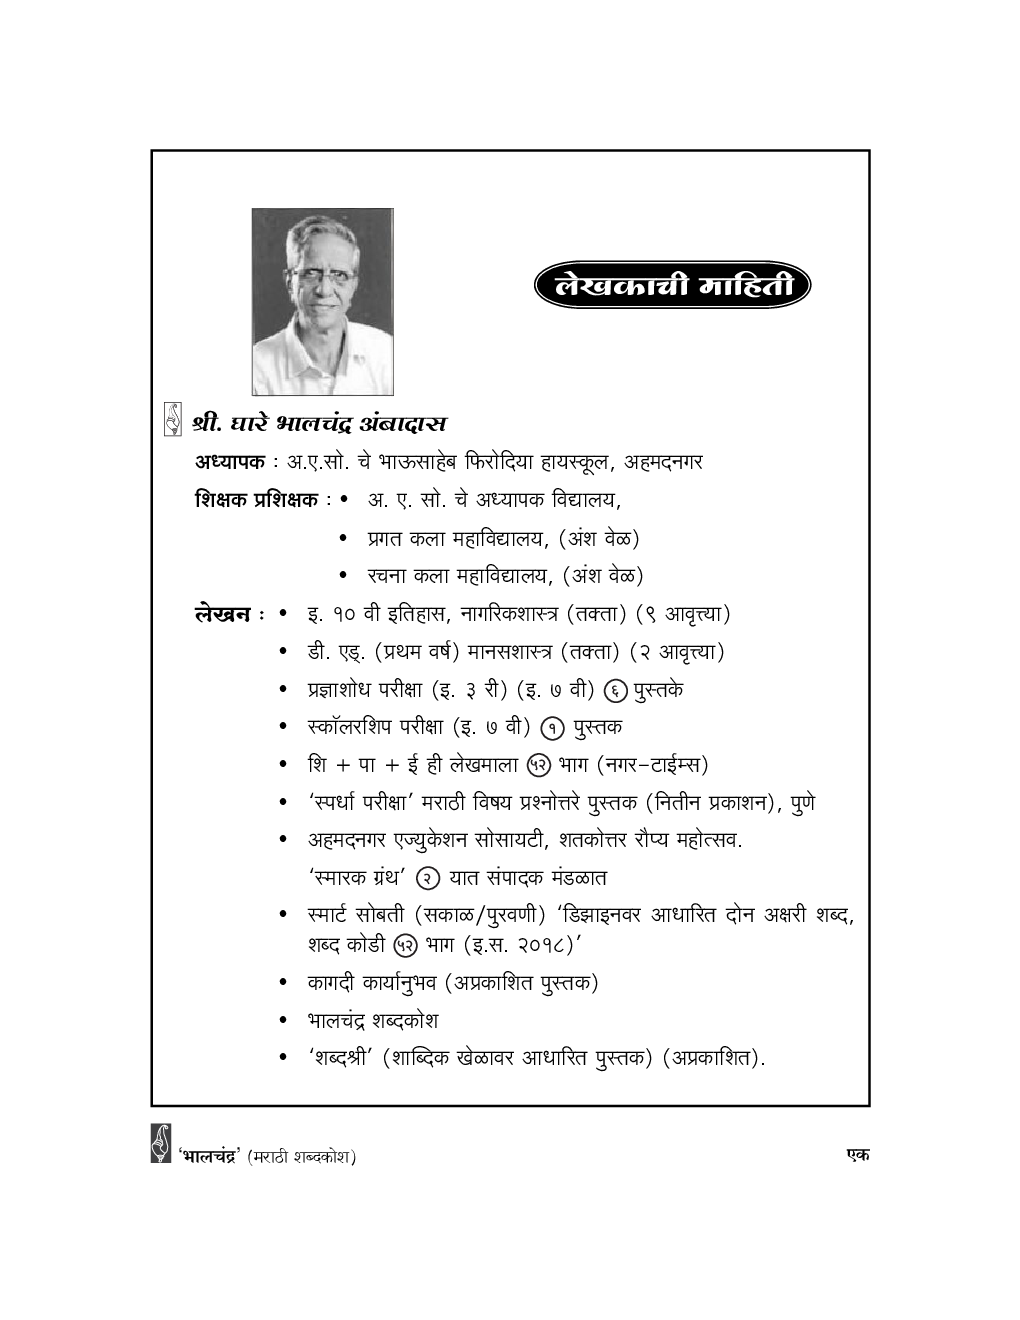 लेखकाची माहिती
श्री. घारे भालचंद्र अंबादास
अध्यापक : अ.ए.सो. चे भाऊसाहेब फिरोदिया हायस्कूल, अहमदनगर
शिक्षक प्रशिक्षक : • अ. ए. सो. चे अध्यापक विद्यालय,
• प्रगत कला महाविद्यालय, (अंश वेळ)
• रचना कला महाविद्यालय, (अंश वेळ)
लेखन : • इ. १० वी इतिहास, नागरिकशास्त्र (तक्ता) (९ आवृत्त्या)
• डी. एड्. (प्रथम वर्ष) मानसशास्त्र (तक्ता) (२ आवृत्त्या)
• प्रज्ञाशोध परीक्षा (इ. ३ री) (इ. ७ वी) ६ पुस्तके
• स्कॉलरशिप परीक्षा (इ. ७ वी) १ पुस्तक
• शि + पा + ई ही लेखमाला ५२ भाग (नगर-टाईम्स)
• ‘स्पर्धा परीक्षा’ मराठी विषय प्रश्नोत्तरे पुस्तक (नितीन प्रकाशन), पुणे
• अहमदनगर एज्युकेशन सोसायटी, शतकोत्तर रौप्य महोत्सव.
‘स्मारक ग्रंथ’ २ यात संपादक मंडळात
• स्मार्ट सोबती (सकाळ/पुरवणी) ‘डिझाइनवर आधारित दोन अक्षरी शब्द,
शब्द कोडी ५२ भाग (इ.स. २०१८)’
• कागदी कार्यानुभव (अप्रकाशित पुस्तक)
• भालचंद्र शब्दकोश
• ‘शब्दश्री’ (शाब्दिक खेळावर आधारित पुस्तक) (अप्रकाशित).
‘भालचंद्र’ (मराठी शब्दकोश)
एक